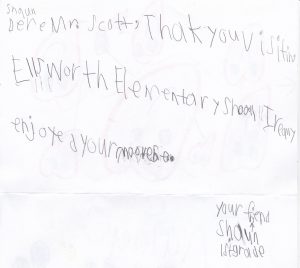 Shaun
Dere Mr Scott, Thak you visiting
Ellsworth Elementary Shool I realy
enjoyed your
your fiend
Shaun
1st grade